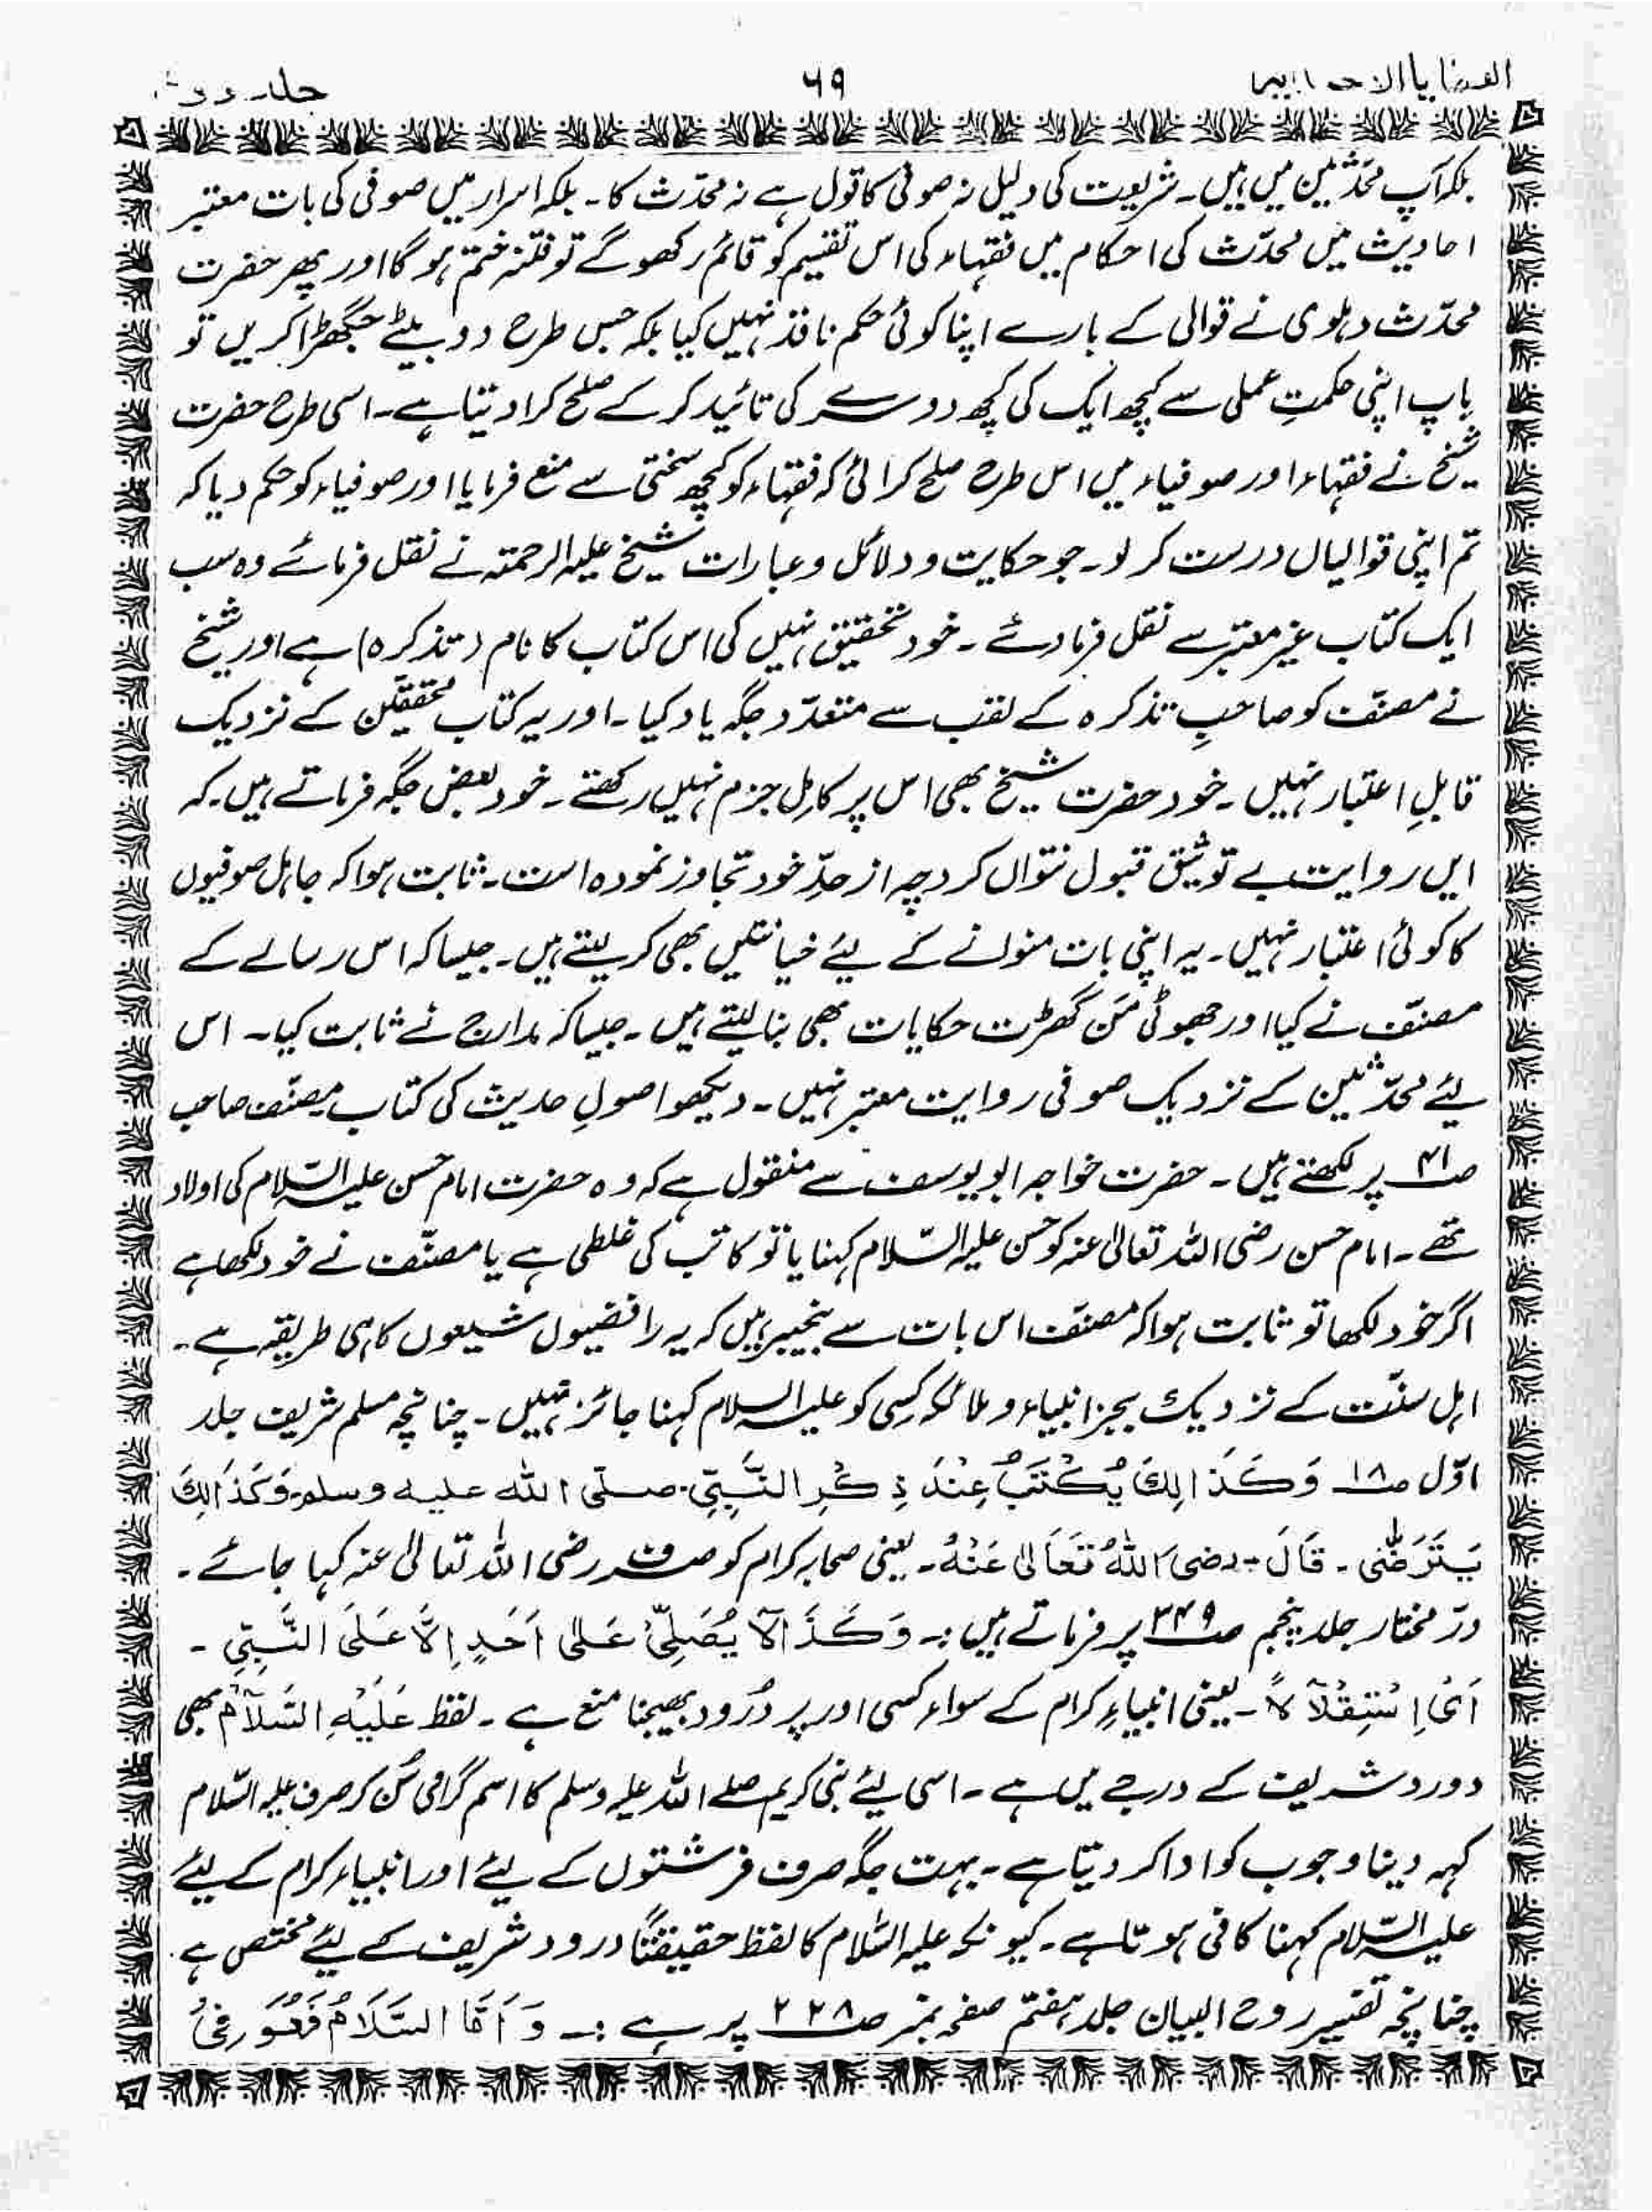 ۶۹
بلکہ آپ محدّثین میں ہیں۔ شریعت کی دلیل نہ صوفی کا قول ہے نہ محدّث کا۔ بلکہ اسرار میں صوفی کی بات معتبر
احادیث میں محدّث کی احکام میں فقہاء کی اس تقسیم کو قائم رکھو گے تو فتنہ ختم ہو گا اور پھر حضرت
محدّث دہلوی نے قوالی کے بارے اپنا کوئی حکم نافذ نہیں کیا بلکہ جس طرح دو بیٹے جگھڑا کریں تو
باپ اپنی حکمتِ عملی سے کچھ ایک کی کچھ دوسرے کی تائید کر کے صلح کرا دیتا ہے۔ اسی طرح حضرت
شیخ نے فقہاء اور صوفیاء میں اس طرح صلح کرائی کہ فقہاء کو کچھ سختی سے منع فرمایا اور صوفیاء کو حکم دیا کہ
تم اپنی قوالیاں درست کر لو۔ جو حکایت و دلائل و عبارات شیخ علیہ الرحمتہ نے نقل فرمائے وہ سب
ایک کتاب غیر معتبر سے نقل فرما دئے۔ خود تحقیق نہیں کی اس کتاب کا نام (تذکرہ) ہے اور شیخ
نے مصنّف کو صاحبِ تذکرہ کے لقب سے متعدّد جگہ یاد کیا۔ اور یہ کتاب محققین کے نزدیک
قابلِ اعتبار نہیں۔ خود حضرت شیخ بھی اس پر کامل جزم نہیں رکھتے۔ خود بعض جگہ فرماتے ہیں۔ کہ
ایں روایت بے توثیق قبول نتواں کرد چہ از حدِّ خود تجاوز نمودہ است۔ ثابت ہوا کہ جاہل صوفیوں
کا کوئی اعتبار نہیں۔ یہ اپنی بات منوانے کے لیئے خیانتیں بھی کر لیتے ہیں۔ جیسا کہ اس رسالے کے
مصنّف نے کیا اور جھوٹی مَن گھڑت حکایات بھی بنا لیتے ہیں۔ جیسا کہ مدارج نے ثابت کیا۔ اس
لیئے محدّثین کے نزدیک صوفی روایت معتبر نہیں۔ دیکھو اصولِ حدیث کی کتاب مصنّف صاحب
صـ۴۱ پر لکھتے ہیں۔ حضرت خواجہ ابو یوسف سے منقول ہے کہ وہ حضرت امام حسن علیہ السّلام کی اولاد
تھے۔ امام حسن رضی اللہ تعالیٰ عنہ کو حسن علیہ السّلام کہنا یا تو کاتب کی غلطی ہے یا مصنّف نے خود لکھا ہے
اگر خود لکھا تو ثابت ہوا کہ مصنّف اس بات سے بیخبر ہیں کہ یہ رافضیوں شیعوں کا ہی طریقہ ہے۔
اہل سنّت کے نزدیک بجز انبیاء و ملائکہ کسی کو علیہ السلام کہنا جائز نہیں۔ چنانچہ مسلم شریف جلد
اوّل صـ۱۸ وَكَذَالِكَ يُكْتَبُ عِنْدَ ذِكْرِ النَّبِيِّ صلّى الله عليه وسلم۔ وَكَذَالِكَ
يَتَرَضّٰى۔ قَالَ رضى اللهُ تَعَالىٰ عَنْهُ۔ یعنی صحابہ کرام کو صرف رضی اللہ تعالیٰ عنہ کہا جائے۔
درّ مختار جلد پنجم صـ۲۴۹ پر فرماتے ہیں:۔ وَكَذَا لَا يُصَلِّىْ عَلىٰ اَحَدٍ اِلَّا عَلَى النَّبِيِّ۔
اَىْ اِسْتِقْلَالًا۔ یعنی انبیاءِ کرام کے سواء کسی اور پر دُرود بھیجنا منع ہے۔ لفظ عَلَيْهِ السَّلَامُ بھی
دورد شریف کے درجے میں ہے۔ اسی لیئے نبی کریم صلے اللہ علیہ وسلم کا اسم گرامی سُن کر صرف علیہ السّلام
کہہ دینا وجوب کو ادا کر دیتا ہے۔ بہت جگہ صرف فرشتوں کے لیئے اور انبیاء کرام کے لیئے
علیہ السّلام کہنا کافی ہوتا ہے۔ کیونکہ علیہ السّلام کا لفظ حقیقتًا درود شریف کے لیئے مختص ہے۔
چنانچہ تفسیر روح البیان جلد ہفتم صفحہ نمبر صـ۲۲۸ پر ہے:۔ وَاَمَّا السَّلَامُ فَهُوَ فِىْ